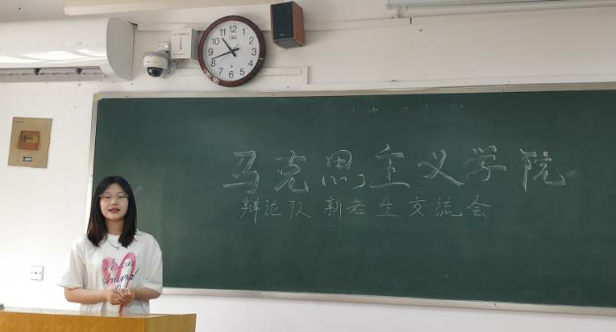 马克思主义学院
辩论队新老生交流会
12
1
2
3
4
5
6
7
8
9
10
11